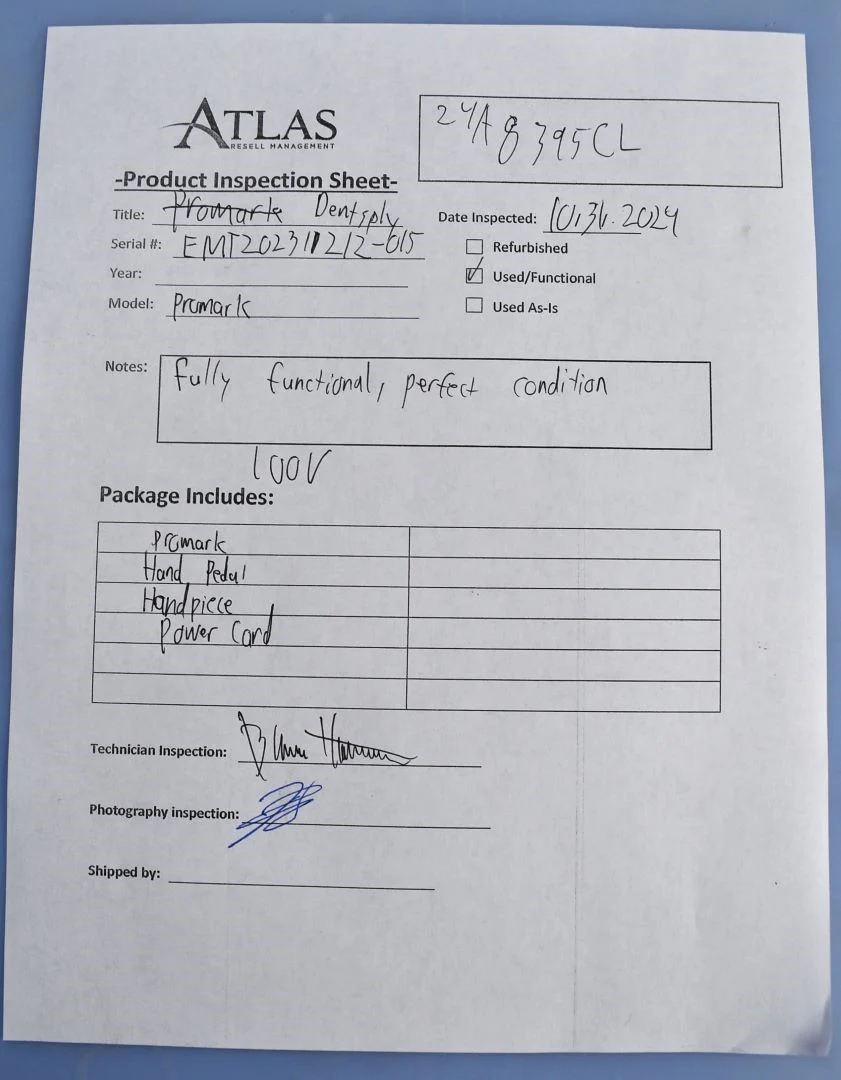 ATLAS
RESELL MANAGEMENT
24A8395CL
-Product Inspection Sheet-
Title: Promark Dentsply
Date Inspected: 10.31.2024
Serial #: EMT202311212-015
Refurbished
Year:
Used/Functional
Model: Promark
Used As-Is
Notes: fully functional, perfect condition
100V
Package Includes:
Promark
Hand Pedal
Handpiece
Power Cord
Technician Inspection:
Photography inspection:
Shipped by: